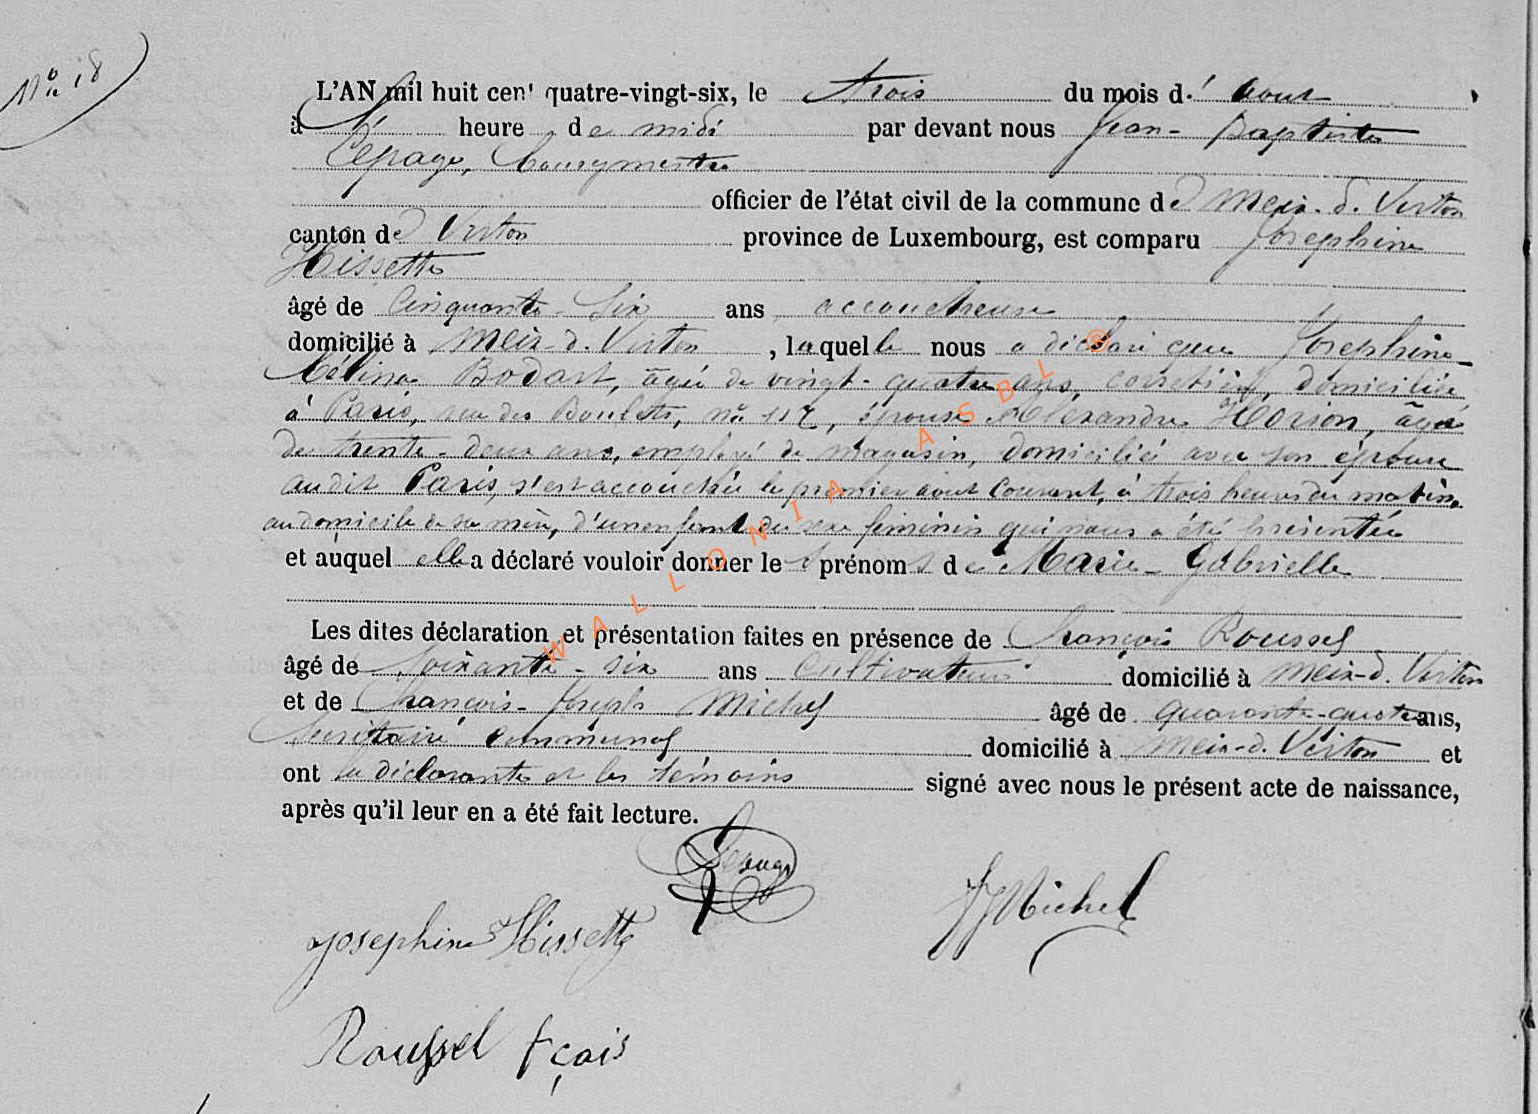 No 18
L'AN mil huit cent quatre-vingt-six, le trois du mois d'août
à l' heure de midi par devant nous Jean-Baptiste
Lepage, bourgmestre
officier de l'état civil de la commune de Meix-d. Virton
canton de Virton province de Luxembourg, est comparu Josephine
Hissette
âgé de Cinquante-six ans accoucheuse
domicilié à Meix-d. Virton , laquelle nous a déclaré que Josephine
Célina Bodart, âgée de vingt-quatre ans, corsetière, domiciliée
à Paris, rue des Boulets, no 117, épouse Alexandre Horion, âgé
de trente-deux ans, employé de magasin, domicilié avec son épouse
audit Paris, s'est accouchée le premier août courant, à trois heures du matin,
au domicile de sa mère, d'un enfant du sexe féminin qui nous a été présentée
et auquel elle a déclaré vouloir donner les prénoms de Marie-Gabrielle
Les dites déclaration et présentation faites en présence de François Roussel
âgé de soixante-six ans Cultivateur domicilié à Meix-d. Virton
et de François-Joseph Michel âgé de quarante-quatre ans,
Secrétaire communal domicilié à Meix-d. Virton et
ont la déclarante et les témoins signé avec nous le présent acte de naissance,
après qu'il leur en a été fait lecture.
Lepage
FJ Michel
Josephine Hissette
Roussel fçois
WALLONIA ASBL ®